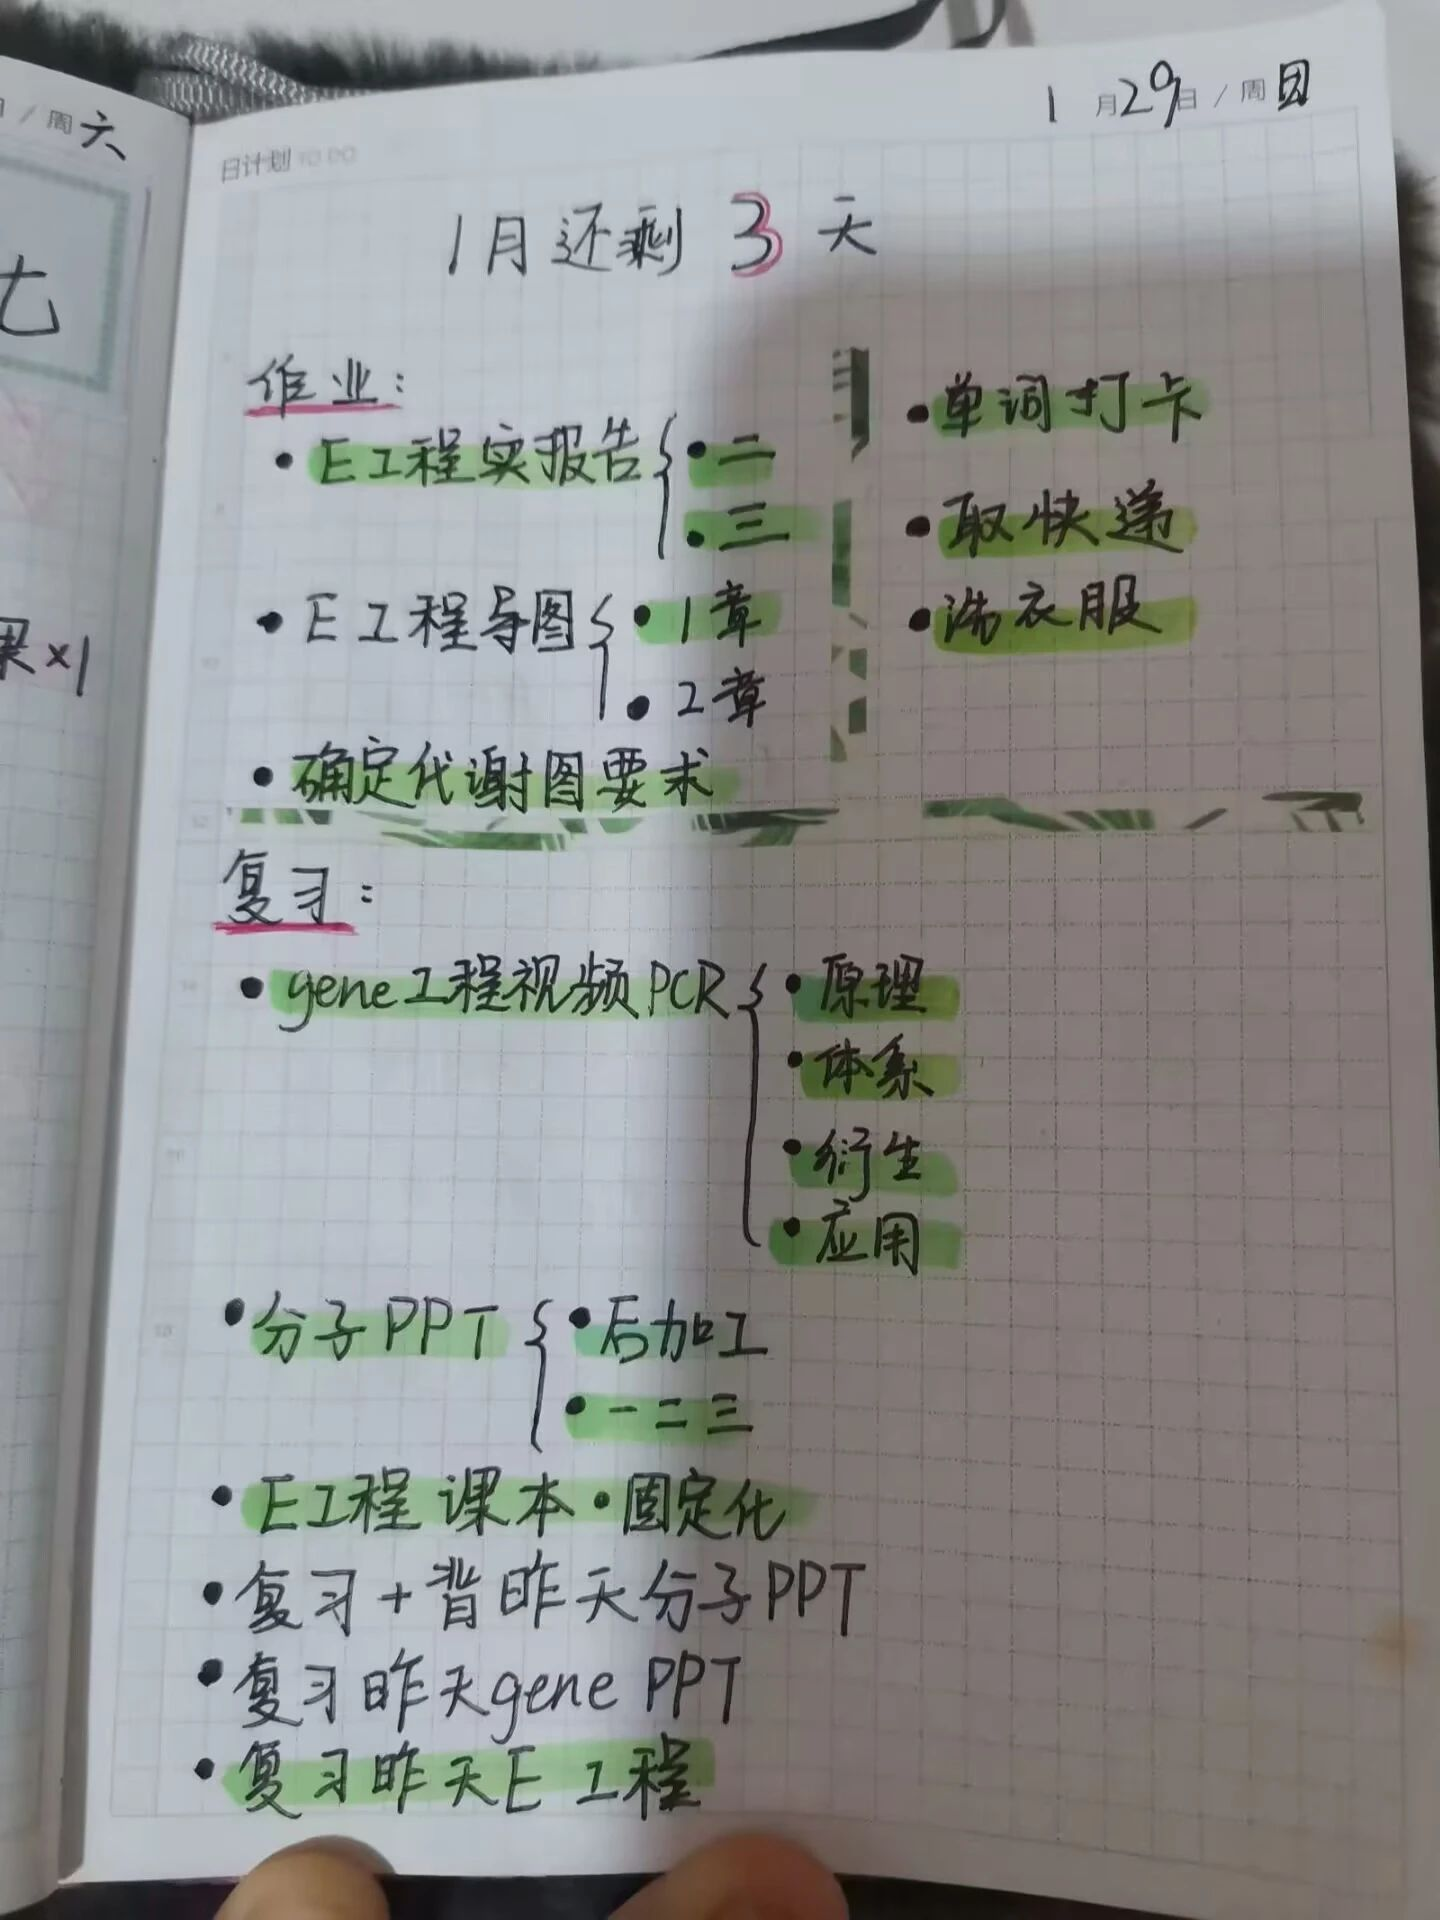 / 周六
七
果×1
1月29日 / 周日
日计划 TO DO
1月还剩 3 天
作业：
• E工程实报告 { • 二
• 三
• E工程导图 { • 1章
• 2章
• 确定代谢图要求
• 单词打卡
• 取快递
• 洗衣服
复习：
• gene工程视频PCR { • 原理
• 体系
• 衍生
• 应用
• 分子PPT { • 后加工
• 一二三
• E工程课本 • 固定化
• 复习+背昨天分子PPT
• 复习昨天gene PPT
• 复习昨天E工程